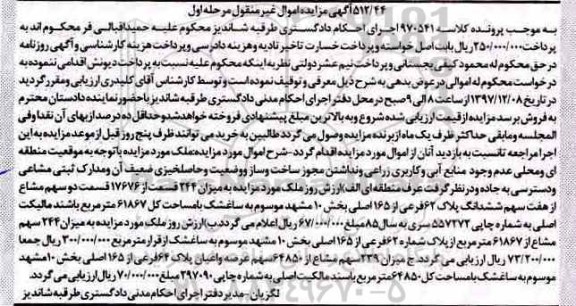 ۵۱۲/۴۴ آگهی مزایده اموال غیر منقول مرحله اول
به موجب پرونده کلاسه ۹۷۰۵۴۱ اجرای احکام دادگستری طرقبه شاندیز محکوم علیه حمیداقبالی فر محکوم اند به
پرداخت ۲۵۰/۰۰۰/۰۰۰ ریال بابت اصل خواسته و پرداخت خسارت تاخیر تادیه و هزینه دادرسی و پرداخت هزینه کارشناسی و آگهی روزنامه
در حق محکوم له محمود کیفی بجستانی و پرداخت نیم عشر دولتی نظر به اینکه محکوم علیه نسبت به پرداخت دیونش اقدامی ننموده به
درخواست محکوم له اموالی در عوض بدهی به شرح ذیل معرفی و توقیف نموده است و توسط کارشناس آقای کلیدری ارزیابی و مقرر گردید
در تاریخ ۱۳۹۷/۱۲/۰۸ از ساعت ۸ الی ۹ صبح در محل دفتر اجرای احکام مدنی دادگستری طرقبه شاندیز با حضور نماینده دادستان محترم
به فروش برسد مزایده از قیمت ارزیابی شده شروع و به بالاترین مبلغ پیشنهادی فروخته خواهد شد و حداقل ده درصد از بهای آن نقدا و فی
المجلس و مابقی حداکثر ظرف یک ماه از برنده مزایده وصول می گردد طالبین به خرید می توانند ظرف پنج روز قبل از موعد مزایده به این
اجرا مراجعه تا نسبت به بازدید آنان از اموال مورد مزایده اقدام گردد-شرح اموال مورد مزایده:ملک مورد مزایده با توجه به موقعیت منطقه
ای و محلی عدم وجود منابع آبی و کاربری زراعی و نداشتن مجوز ساخت و ساز و وضعیت و حاصلخیزی ضعیف آن و مدارک ثبتی مشاعی
و دسترسی به جاده و در نظر گرفت عرف منطقه ای الف)ارزش روز ملک مورد مزایده به میزان ۲۴۴ قسمت از ۱۷۶۷۶ قسمت دو سهم مشاع
از هفت سهم ششدانگ پلاک ۶۲ فرعی از ۱۶۵ اصلی بخش ۱۰ مشهد موسوم به ساغشک بامساحت کل ۶۱۸۶۷ مترمربع باشند مالکیت
اصلی به شماره چاپی ۵۵۷۲۷۳ سری به سال ۸۵ مبلغ ۶۷/۰۰۰/۰۰۰ ریال اعلام می گردد.ب)ارزش روز ملک مورد مزایده به میزان ۲۴۴ سهم
مشاع از ۶۱۸۶۷ مترمربع از پلاک شماره ۶۲ فرعی از ۱۶۵ اصلی بخش ۱۰ مشهد موسوم به ساغشک از قرار مترمربع ۳۰۰/۰۰۰ ریال جمعا
۷۳/۲۰۰/۰۰۰ ریال ارزیابی می گردد. ج میزان ۲۳۹ سهم مشاع از ۶۴۸۵۰ سهم عرصه و اعیان پلاک ۶۴ فرعی از ۱۶۵ اصلی بخش ۱۰ مشهد
موسوم به ساغشک بامساحت کل ۶۴۸۵۰ مترمربع باسند مالکیت اصلی به شماره چاپی ۳۹۷۰۹۰ مبلغ ۷۰/۰۰۰/۰۰۰ ریال ارزیابی می گردد.
لگزیان-مدیر دفتر اجرای احکام مدنی دادگستری طرقبه شاندیز